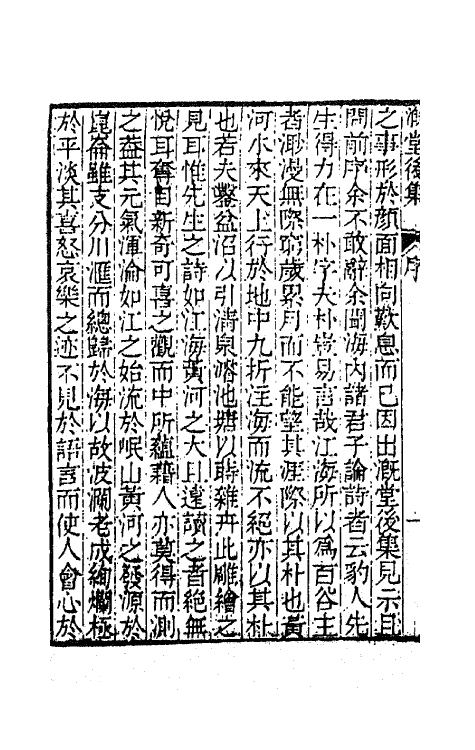 溉堂後集 序 一
之事形於顏面相向歎息而已因出溉堂後集見示且
問前序余不敢辭余聞海內諸君子論詩者云豹人先
生得力在一朴字夫朴豈易言哉江海所以為百谷王
者渺漫無際窮歲累月而不能望其涯際以其朴也黃
河水來天上行於地中九折注海而流不絕亦以其朴
也若夫鑿盆沼以引清泉瀦池塘以蒔雜卉此雕繪之
見耳惟先生之詩如江海黃河之大且達讀之者絕無
悅耳奪目新奇可喜之觀而中所蘊藉人亦莫得而測
之蓋其元氣渾淪如江之始流於岷山黃河之發源於
崑崙雖支分川滙而總歸於海以故波瀾老成絢爛極
於平淡其喜怒哀樂之迹不見於語言而使人會心於